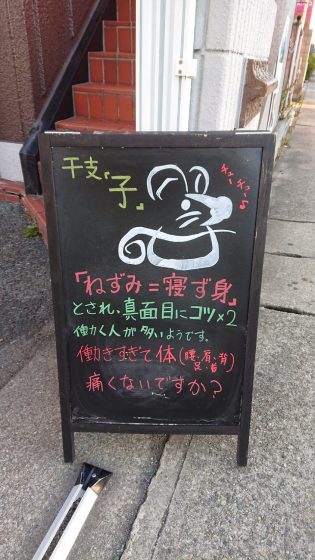 干支「子」
チューチュー♪
「ねずみ=寝ず身」
とされ、真面目にコツ×2
働く人が多いようです。
働きすぎて体(腰・肩・背
足・首)
痛くないですか?